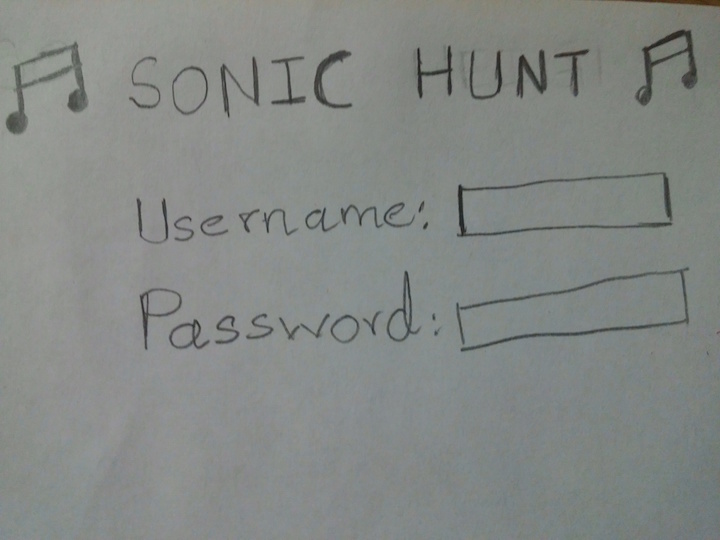 SONIC HUNT
Username:
Password: